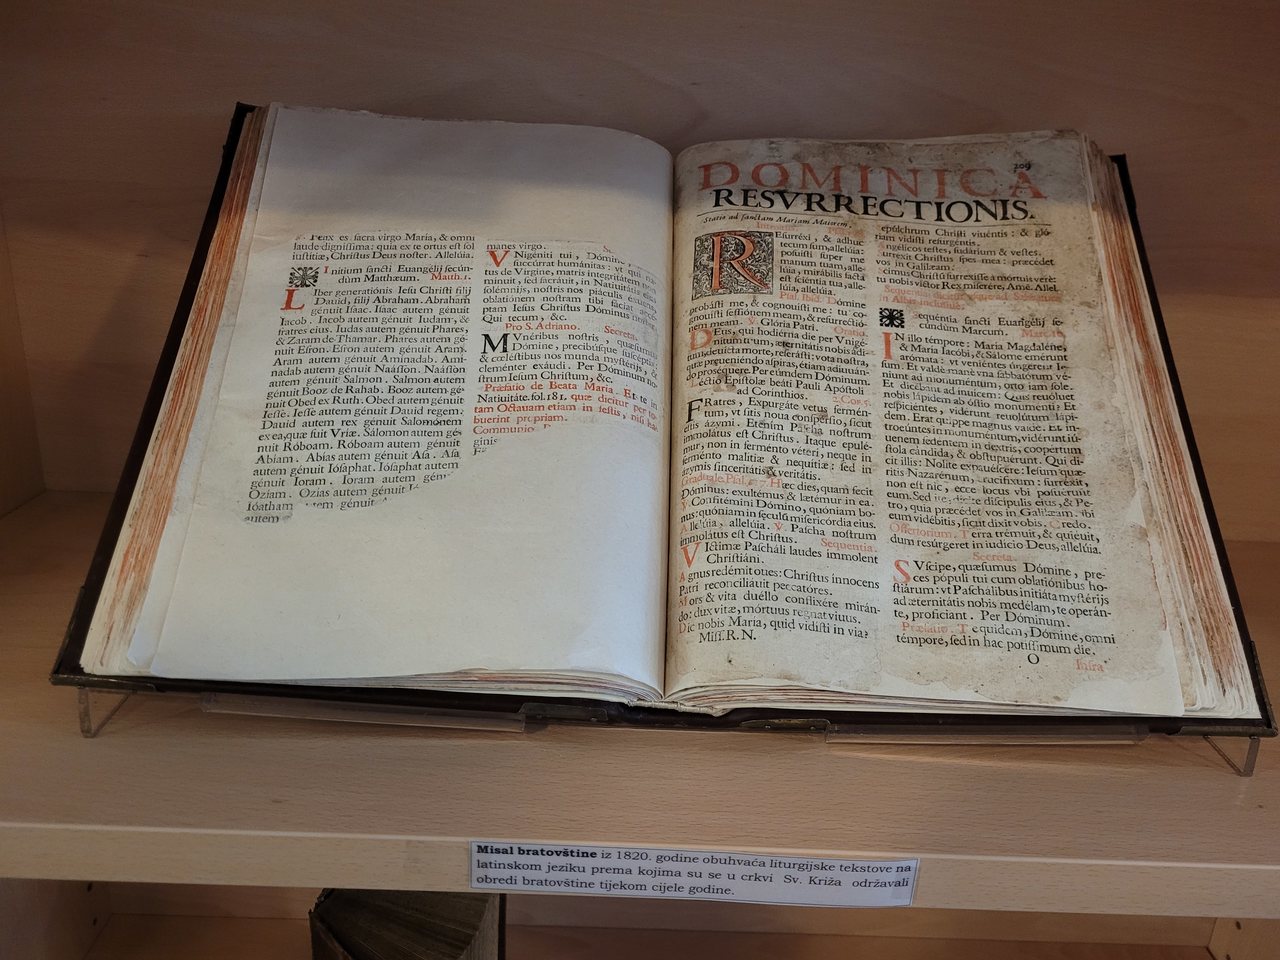 Felix es sacra virgo Maria, & omni
laude dignissima: quia ex te ortus est sol
iustitiæ, Christus Deus noster. Allelúia.
Initium sancti Euangélij secún-
dum Matthæum. Matth. 1.
Liber generatiónis Iesu Christi filij
Dauid, filij Abraham. Abraham
génuit Isaac. Isaac autem génuit
Iacob. Iacob autem génuit Iudam, &
fratres eius. Iudas autem génuit Phares,
& Zaram de Thamar. Phares autem gé-
nuit Esron. Esron autem génuit Aram.
Aram autem génuit Aminadab. Ami-
nadab autem génuit Naásson. Naásson
autem génuit Salmon. Salmon autem
génuit Booz de Rahab. Booz autem gé-
nuit Obed ex Ruth. Obed autem génuit
Iesse. Iesse autem génuit Dauid regem.
Dauid autem rex génuit Salomónem
ex ea, quæ fuit Vriæ. Sálomon autem gé-
nuit Róboam. Róboam autem génuit
Abíam. Abías autem génuit Asa. Asa
autem génuit Iósaphat. Iósaphat autem
génuit Ioram. Ioram autem génuit
Oziam. Ozias autem génuit
Ióatham. autem génuit
autem
manes virgo.
VNigéniti tui, Dómine,
succúrrat humánitas: vt qui
tus de Virgine, matris integritátem
minuit, sed sacráuit, in Natiuitátis
solémnijs, nostris nos piáculis
oblatiónem nostram tibi fáciat
ptam Iesus Christus Dóminus noster.
Qui tecum, &c.
Pro S. Adriano. Secreta.
MVnéribus nostris, quæsumus
Dómine, precibúsque suscéptis:
& cœléstibus nos munda mystérijs, &
cleménter exáudi. Per Dóminum no-
strum Iesum Christum, &c.
Præfatio de Beata Maria. Et te in
Natiuitáte. fol. 181. que dicitur per to-
tam Octauam etiam in festis, nisi
buerint propriam.
Communio.
ginis
209
DOMINICA
RESVRRECTIONIS.
Statio ad sanctam Mariam Maiorem.
REsurréxi, & adhuc
tecum sum, allelúia:
posuísti super me
manum tuam, alle-
lúia, mirábilis facta
est sciéntia tua, alle-
lúia, allelúia.
Psal. Ibid. Dómine
probásti me, & cognouísti me: tu co-
gnouísti sessiónem meam, & resurrectió-
nem meam. ℣. Glória Patri. Oratio.
DEus, qui hodiérna die per Vnigé-
nitum tuum, æternitátis nobis ádi-
tum, deuícta morte, reserásti: vota nostra,
quæ præueniéndo aspíras, étiam adiuuán-
do prosequere. Per eúmdem Dóminum.
Léctio Epístolæ beáti Pauli Apóstoli
ad Corínthios. 1. Cor. 5.
FRatres, Expurgáte vetus fermén-
tum, vt sitis noua conspérsio, sicut
estis ázymi. Etenim Pascha nostrum
immolátus est Christus. Itaque epulé-
mur, non in ferménto véteri, neque in
ferménto malítiæ & nequítiæ: sed in
ázymis sinceritátis & veritátis.
Graduale. Psal. 117. Hæc dies, quam fecit
Dóminus: exultémus & lætémur in ea.
℣. Confitémini Dómino, quóniam bo-
nus: quóniam in sécula misericórdia eius.
Allelúia, allelúia. ℣. Pascha nostrum
immolátus est Christus. Sequentia.
VIctimæ Pascháli laudes immolent
Christiáni.
Agnus redémit oues: Christus innocens
Patri reconciliáuit peccatóres.
Mors & vita duéllo conflixére mirán-
do: dux vitæ, mórtuus regnat viuus.
Dic nobis Maria, quid vidísti in via?
Miss. R. N.
Sepúlchrum Christi viuéntis: & gló-
riam vidísti resurgéntis.
Angélicos testes, sudárium & vestes.
Surréxit Christus spes mea: præcédet
vos in Galilæam.
Scimus Christum surrexísse a mórtuis verè:
tu nobis victor Rex miserére, Amē. Allel.
Sequentia dicitur vsque ad Sabbatum
in Albis inclusiuè.
Sequéntia. sancti Euangélij se-
cundum Marcum. Marc. 16.
IN illo témpore: María Magdaléne,
& María Iacóbi, & Sálome emérunt
arómata: vt veniéntes vngerent Ie-
sum. Et valde mane vna sabbatórum vé-
niunt ad monuméntum, orto iam sole.
Et dicébant ad ínuicem: Quis reuóluet
nobis lápidem ab óstio monuménti? Et
respiciéntes, vidérunt reuolútum lápi-
dem. Erat quippe magnus valde. Et in-
troeúntes in monuméntum, vidérunt iú-
uenem sedéntem in dextris, coopértum
stola cándida, & obstupuérunt. Qui di-
cit illis: Nolíte expauéscere: Iesum quæ-
rítis Nazarénum, crucifíxum: surréxit,
non est hic, ecce locus vbi posuérunt
eum. Sed ite, dícite discípulis eius, & Pe-
tro, quia præcédet vos in Galilæam. ibi
eum vidébitis, sicut dixit vobis. Credo.
Offertorium. Terra trémuit, & quiéuit,
dum resúrgeret in iudício Deus, allelúia.
Secreta.
SVscipe, quæsumus Dómine, pre-
ces pópuli tui cum oblatiónibus ho-
stiárum: vt Paschálibus initiáta mystérijs
ad æternitátis nobis medélam, te operán-
te, profíciant. Per Dóminum.
Præfatio. Te quidem, Dómine, omni
témpore, sed in hac potíssimum die.
O Infra
Misal bratovštine iz 1820. godine obuhvaća liturgijske tekstove na
latinskom jeziku prema kojima su se u crkvi Sv. Križa održavali
obredi bratovštine tijekom cijele godine.